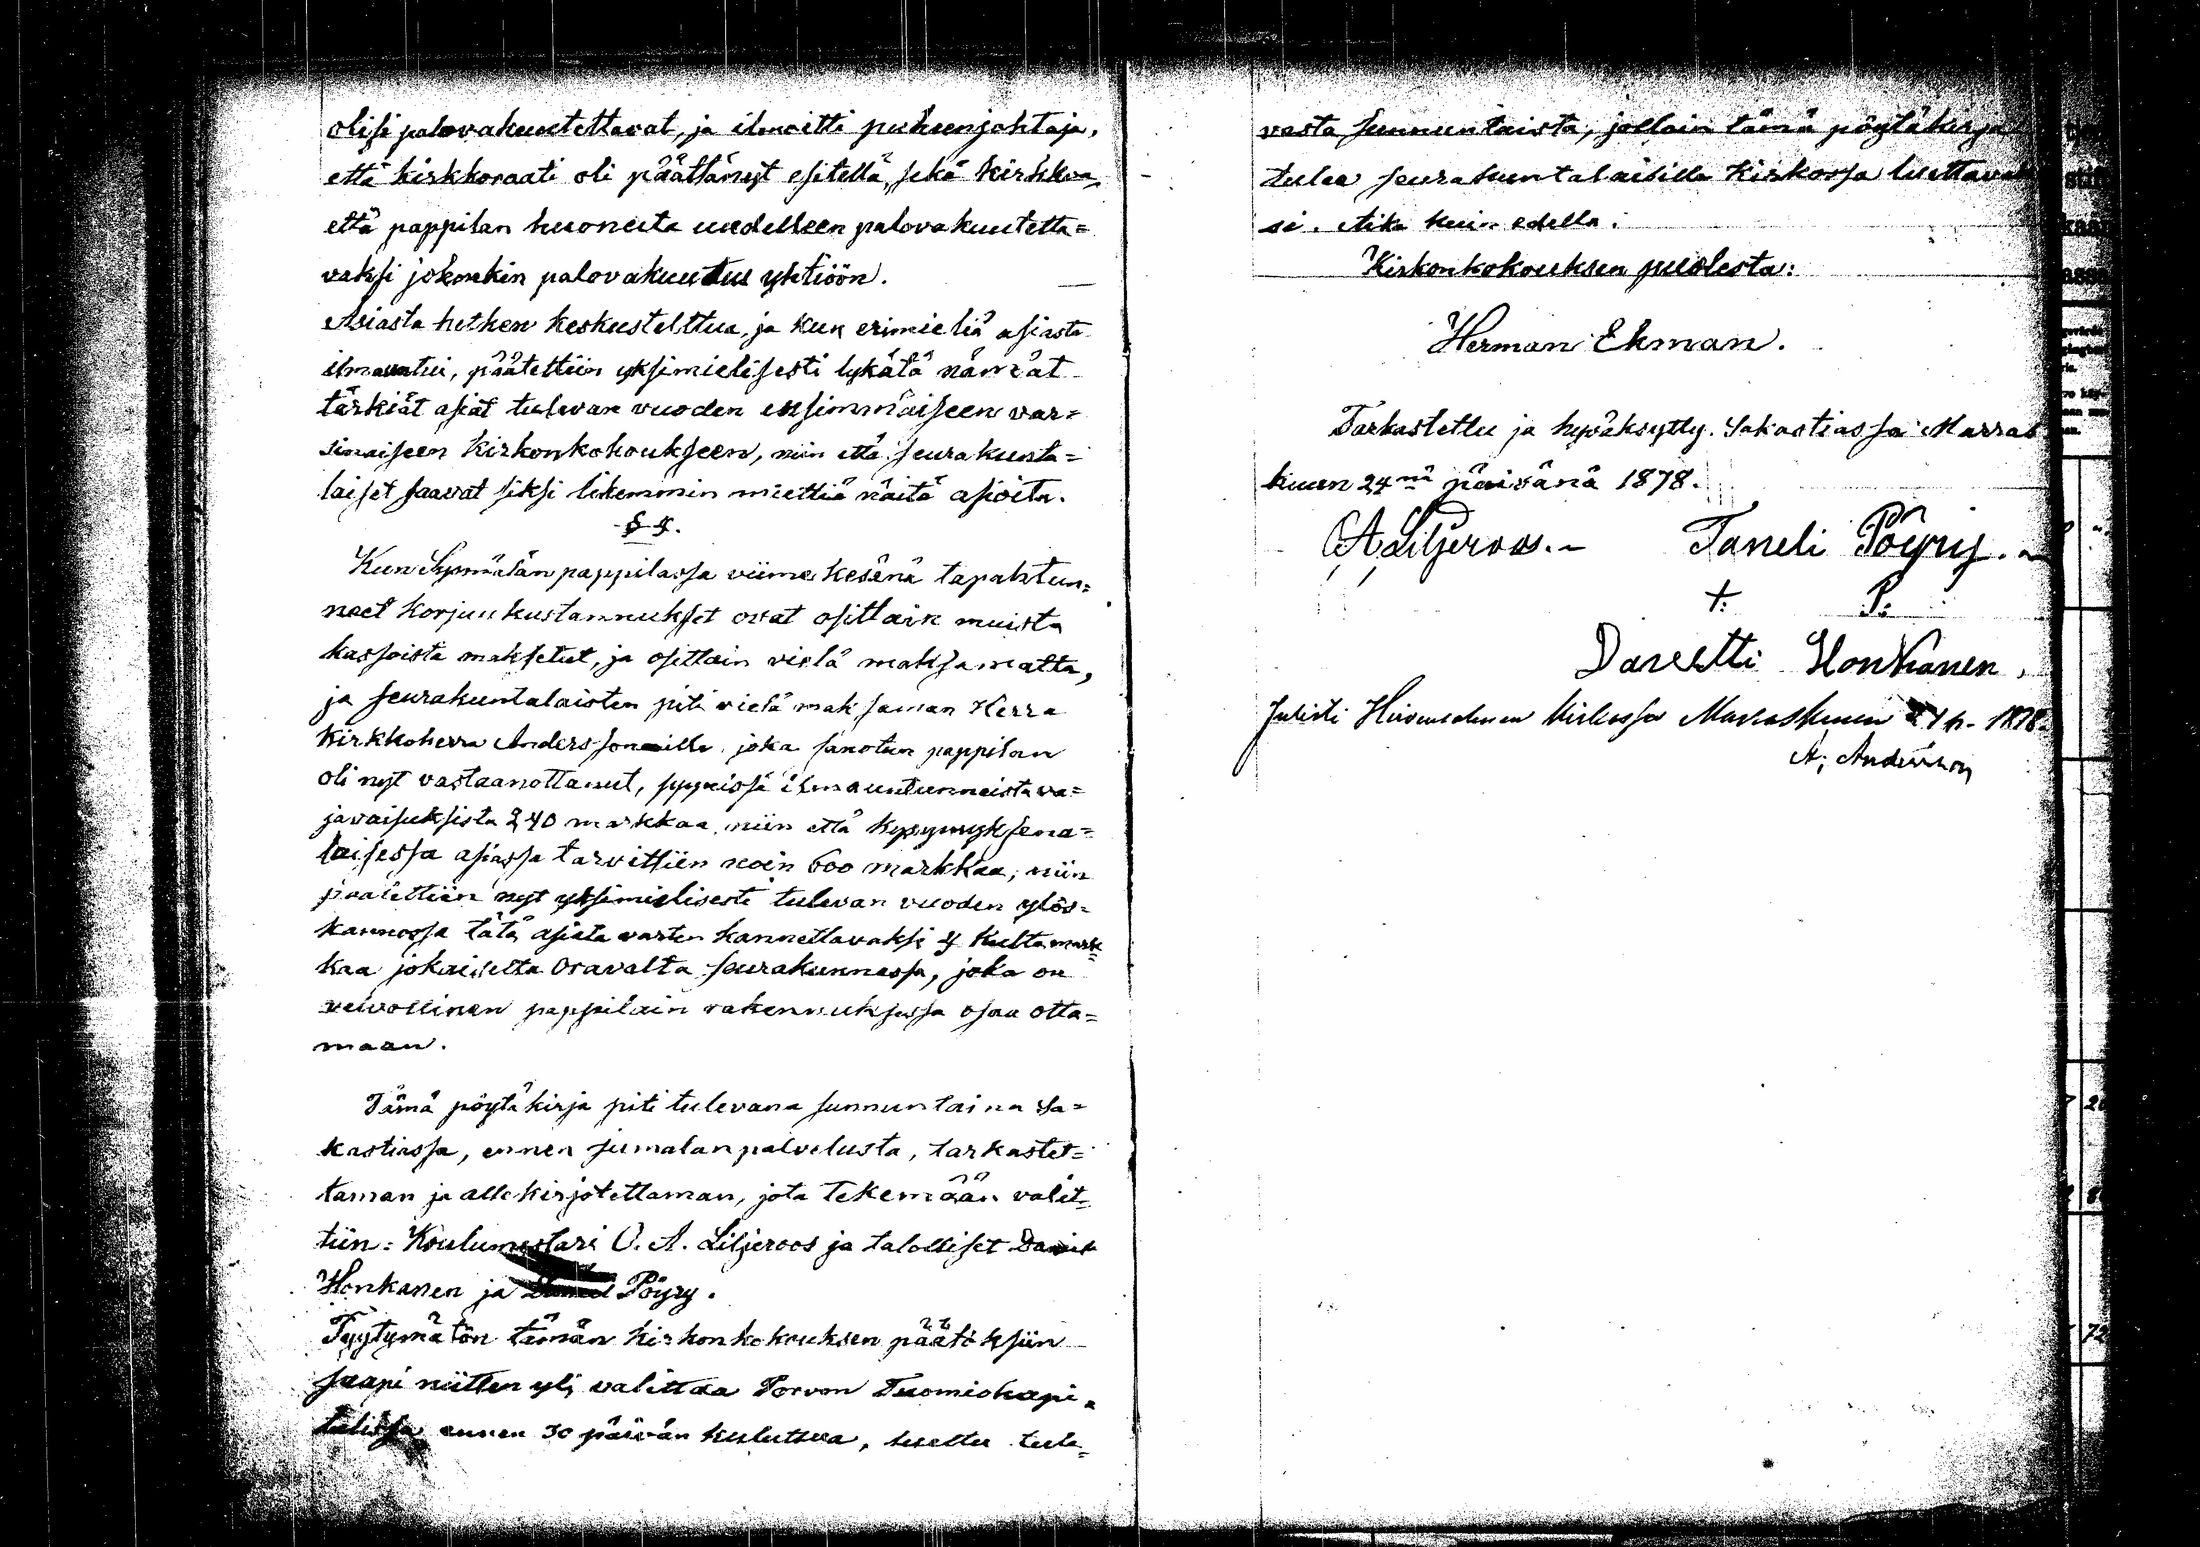 olisi palovakuutettavat, ja ilmoitti puheenjohtaja,
että kirkkoraati oli päättänyt esitellä, sekä kirkkoa,
että pappilan huoneita uudelleen palovakuutetta=
vaksi johonkin palovakuutus yhtiöön.
Asiasta hetken keskusteltua, ja kun erimieliä asiasta
ilmauntui, päätettiin yksimielisesti lykätä nämät
tärkiät asiat tulevan vuoden ensimmäiseen var=
sinaiseen Kirkonkokoukseen, niin että seurakunta=
laiset saavat siksi likemmin miettiä näitä asioita.
§ 4.
Kun pappilassa viime kesänä tapahtu=
neet korjuu kustannukset ovat osittain muista
kassoista maksetut, ja osittain vielä maksamatta,
ja seurakuntalaisten piti vielä maksaman Herra
Kirkkoherra Anderssonille, joka sanotun pappilan
oli nyt vastaanottanut, syynissä ilmauntunneista va=
javaisuksista 240 markkaa, niin että kysymyksena=
laisessa asiassa tarvittiin noin 600 markkaa; niin
päätettiin nyt yksimielisesti tulevan vuoden ylös=
kannossa tätä asiata varten kannettavaksi 4 Kulta mark=
kaa jokaiselta Oravalta seurakunnassa, joka on
velvollinen pappilain rakennuksessa osaa otta=
maan.
Tämä pöytäkirja piti tulevana sunnuntaina Sa=
kastiassa, ennen jumalanpalvelusta, tarkastet=
taman ja allekirjotettaman, jota tekemään valit=
tiin: Koulumestari O. A. Liljeroos ja talolliset
Honkanen ja Pöyry.
Tyytymätön tämän kirkonkokouksen päätöksiin
saapi niitten yli valittaa Porvon Tuomiokapi=
talissa ennen 30 päivän kuluttua, luettu tule=
vasta sunnuntaista, jolloin tämä pöytäkirja
tulee seurakuntalaisille Kirkossa luettavak
si. Aika kuin edellä.
Kirkonkokouksen puolesta:
Herman Ekman.
Tarkastettu ja hyväksytty. Sakastiassa Marras
kuun 24nä päivänä 1878.
OA Liljeroos.- Taneli Pöyry.
+ P.
Davetti Honkanen.
Julisti Kirkossa Marraskuun 24 p. 1878.
A; Andersson